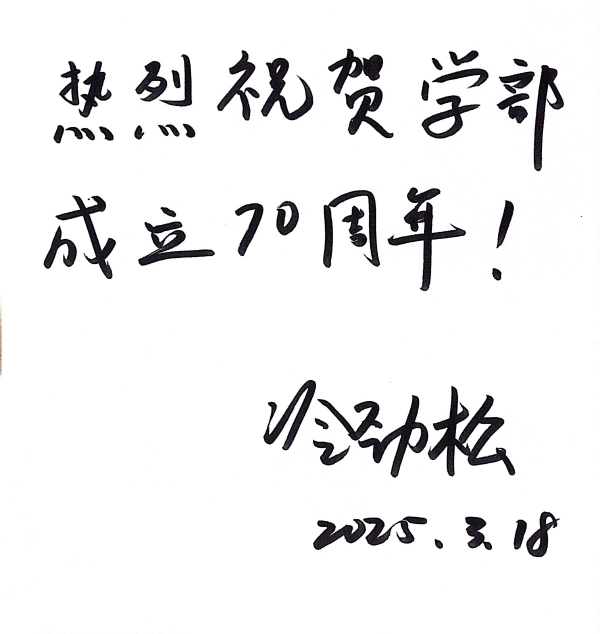 热烈祝贺学部
成立70周年!
冷劲松
2025.3.18